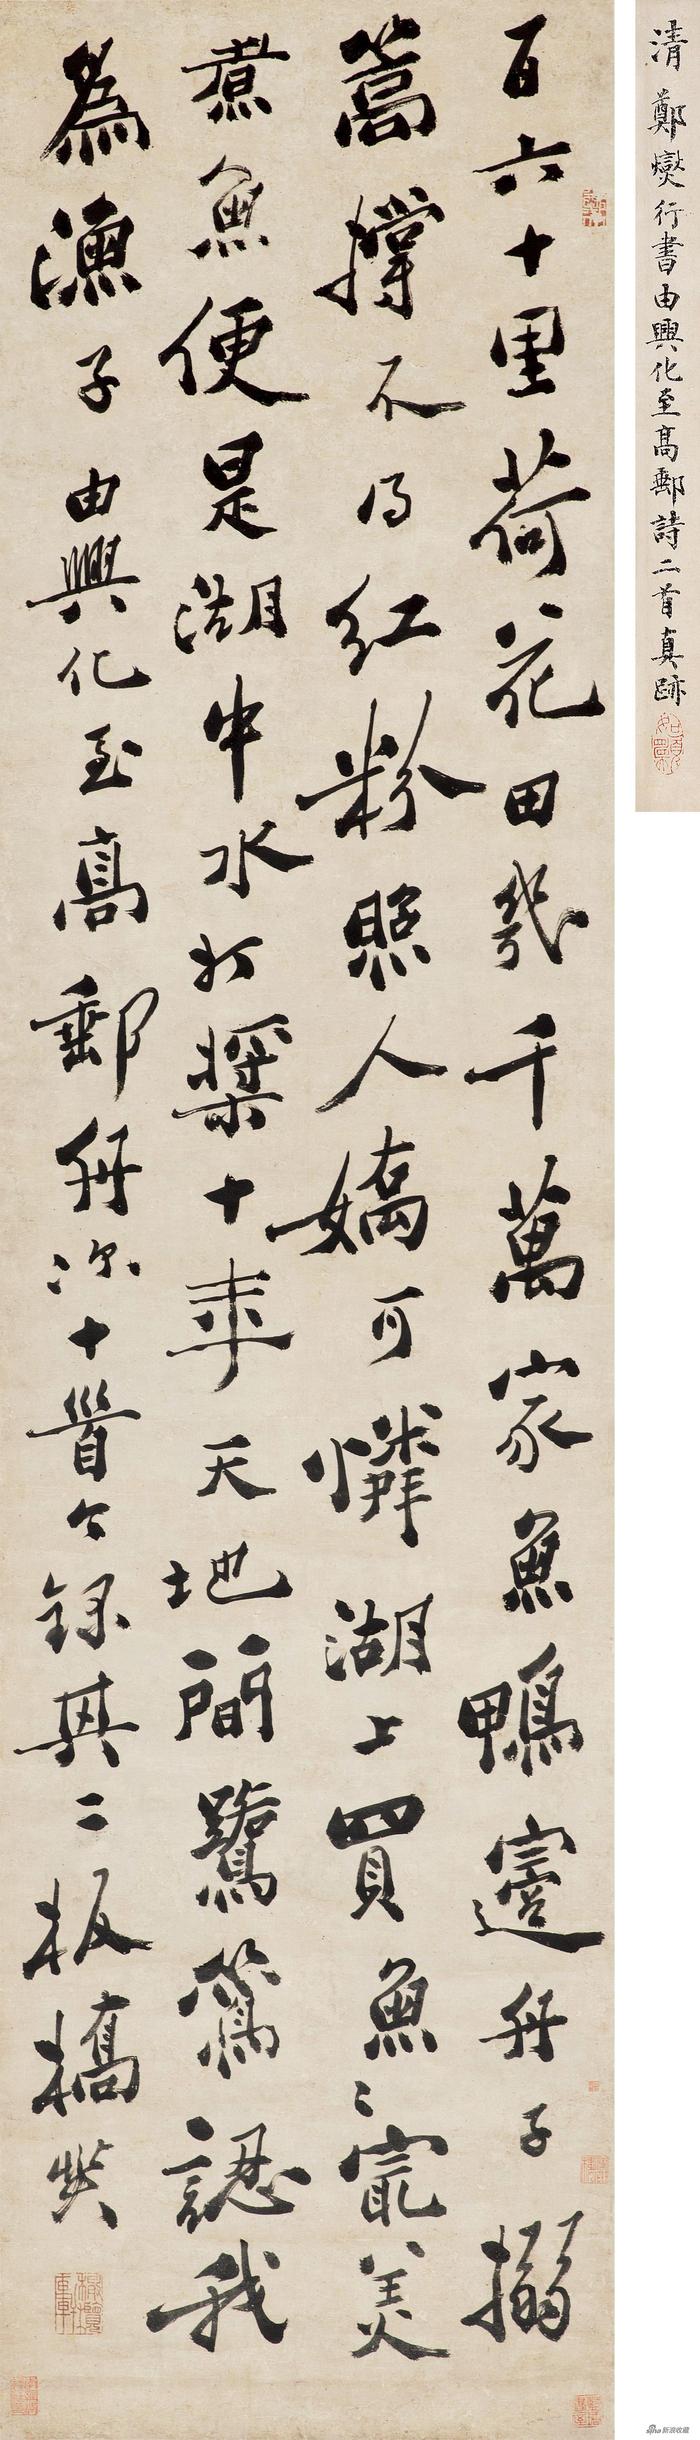 清 鄭燮行書由興化至高郵詩二首真跡
百六十里荷花田幾千萬家魚鴨邊舟子搦
篙撐不得紅粉照人嬌可憐湖上買魚魚最美
煮魚便是湖中水打槳十年天地間鷺鷥認我
為漁子由興化至高郵舟次十首今錄其二板橋燮
sina新浪收藏